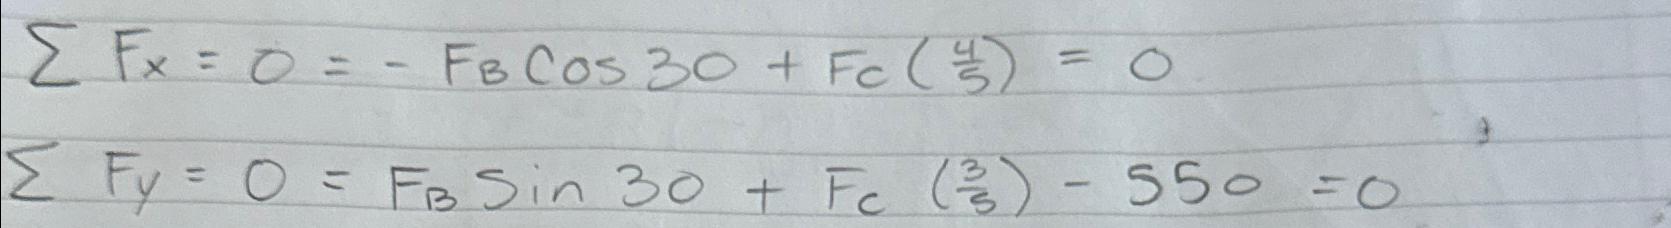 ∑ Fx = 0 = - FB Cos 30 + FC (4/5) = 0
∑ Fy = 0 = FB Sin 30 + FC (3/5) - 550 = 0